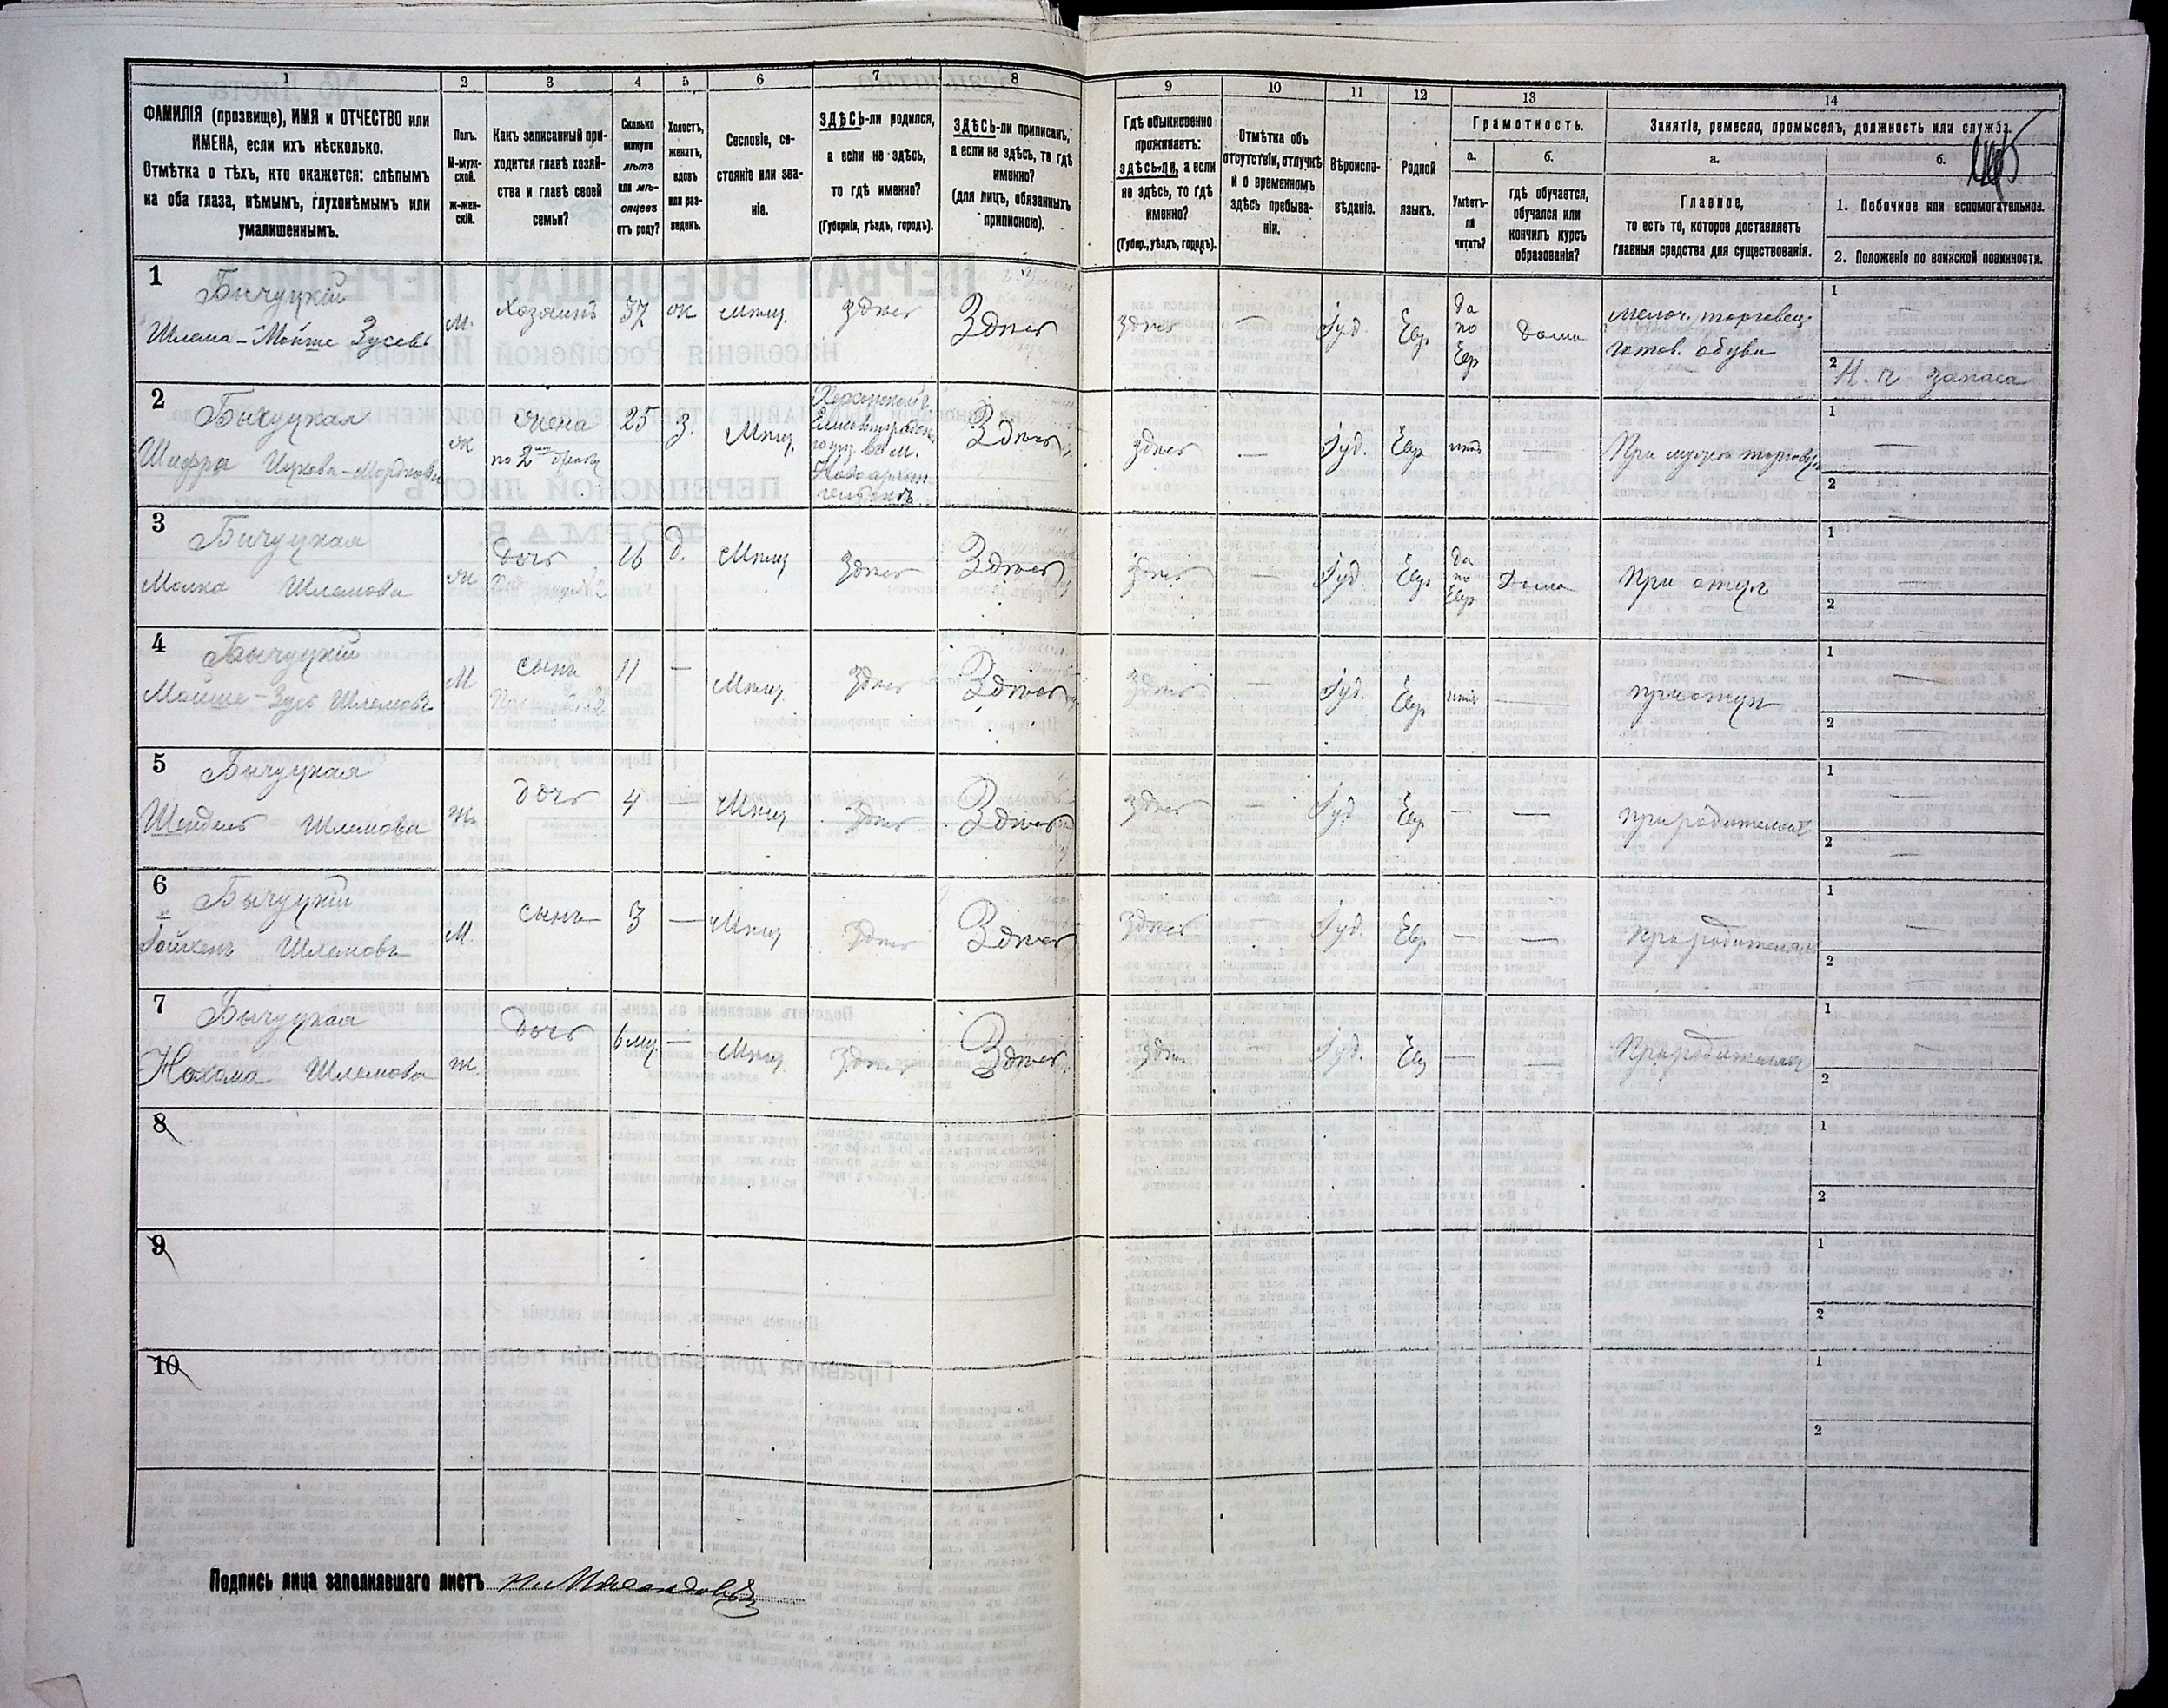 1 2 3 4 5 6 7 8 9 10 11 12 13 14
ФАМИЛІЯ (прозвище), ИМЯ и ОТЧЕСТВО или
ИМЕНА, если ихъ нѣсколько.
Отмѣтка о тѣхъ, кто окажется: слѣпымъ
на оба глаза, нѣмымъ, глухонѣмымъ или
умалишеннымъ.
Полъ.
М-муж-
ской.
Ж-жен-
скій.
Какъ записанный при-
ходится главѣ хозяй-
ства и главѣ своей
семьи?
Сколько
минуло
лѣтъ
или мѣ-
сяцевъ
отъ роду?
Холостъ,
женатъ,
вдовъ
или раз-
веденъ.
Сословіе, со-
стояніе или зва-
ніе.
ЗДѢСЬ-ли родился,
а если не здѣсь,
то гдѣ именно?
(Губернія, уѣздъ, городъ).
ЗДѢСЬ-ли приписанъ,
а если не здѣсь, то гдѣ
именно?
(для лицъ, обязанныхъ
припискою).
Гдѣ обыкновенно
проживаетъ:
здѣсь-ли, а если
не здѣсь, то гдѣ
именно?
(Губер., уѣздъ, городъ).
Отмѣтка объ
отсутствіи, отлучкѣ
и о временномъ
здѣсь пребыва-
ніи.
Вѣроиспо-
вѣданіе.
Родной
языкъ.
Грамотность.
а. б.
Умѣетъ-
ли
читать?
гдѣ обучается,
обучался или
кончилъ курсъ
образованія?
Занятіе, ремесло, промыселъ, должность или служба.
а. б.
Главное,
то есть то, которое доставляетъ
главныя средства для существованія.
1. Побочное или вспомогательное.
2. Положеніе по воинской повинности.
1
Бычуцкій
Шлема-Мойше Зусевъ
М.
Хозяинъ
37
ж
Мѣщ.
здѣсь
Здѣсь
здѣсь
—
Іуд.
Евр
да
по
Евр
дома
мелоч. торговец
готов. обуви
1 —
2 Н. ч запаса
2
Бычуцкая
Шифра
ж
жена
25
з.
Мѣщ.
Херсонской
Елисаветградск.
Новоархан
гельскъ
Здѣсь
здѣсь
—
Іуд.
Евр
нѣтъ
—
При мужѣ
1 —
2 —
3
Бычуцкая
Малка Шлемова
ж
дочь
16
д.
Мѣщ
здѣсь
Здѣсь
здѣсь
—
Іуд
Евр
да
по
Евр
дома
При отцѣ
1 —
2 —
4
Бычуцкій
Мойше-Зусь Шлемовъ
М
сынъ
11
—
Мѣщ
здѣсь
Здѣсь
здѣсь
—
Іуд.
Евр
нѣтъ
—
при отцѣ
1 —
2 —
5
Бычуцкая
Шейдель Шлемова
ж
дочь
4
—
Мѣщ
здѣсь
Здѣсь
здѣсь
—
Іуд
Евр
—
—
при родителяхъ
1
2 —
6
Бычуцкій
Шлемовъ
М
сынъ
3
—
Мѣщ
здѣсь
Здѣсь
здѣсь
—
Іуд.
Евр
—
—
при родителях
1 —
2
7
Бычуцкая
Нахама Шлемова
ж.
дочь
6 мц
—
Мѣщ
здѣсь
Здѣсь
здѣсь
—
Іуд.
Евр
—
—
При родителях
1 —
2
8
1
2
9
1
2
10
1
2
Подпись лица заполнявшаго листъ